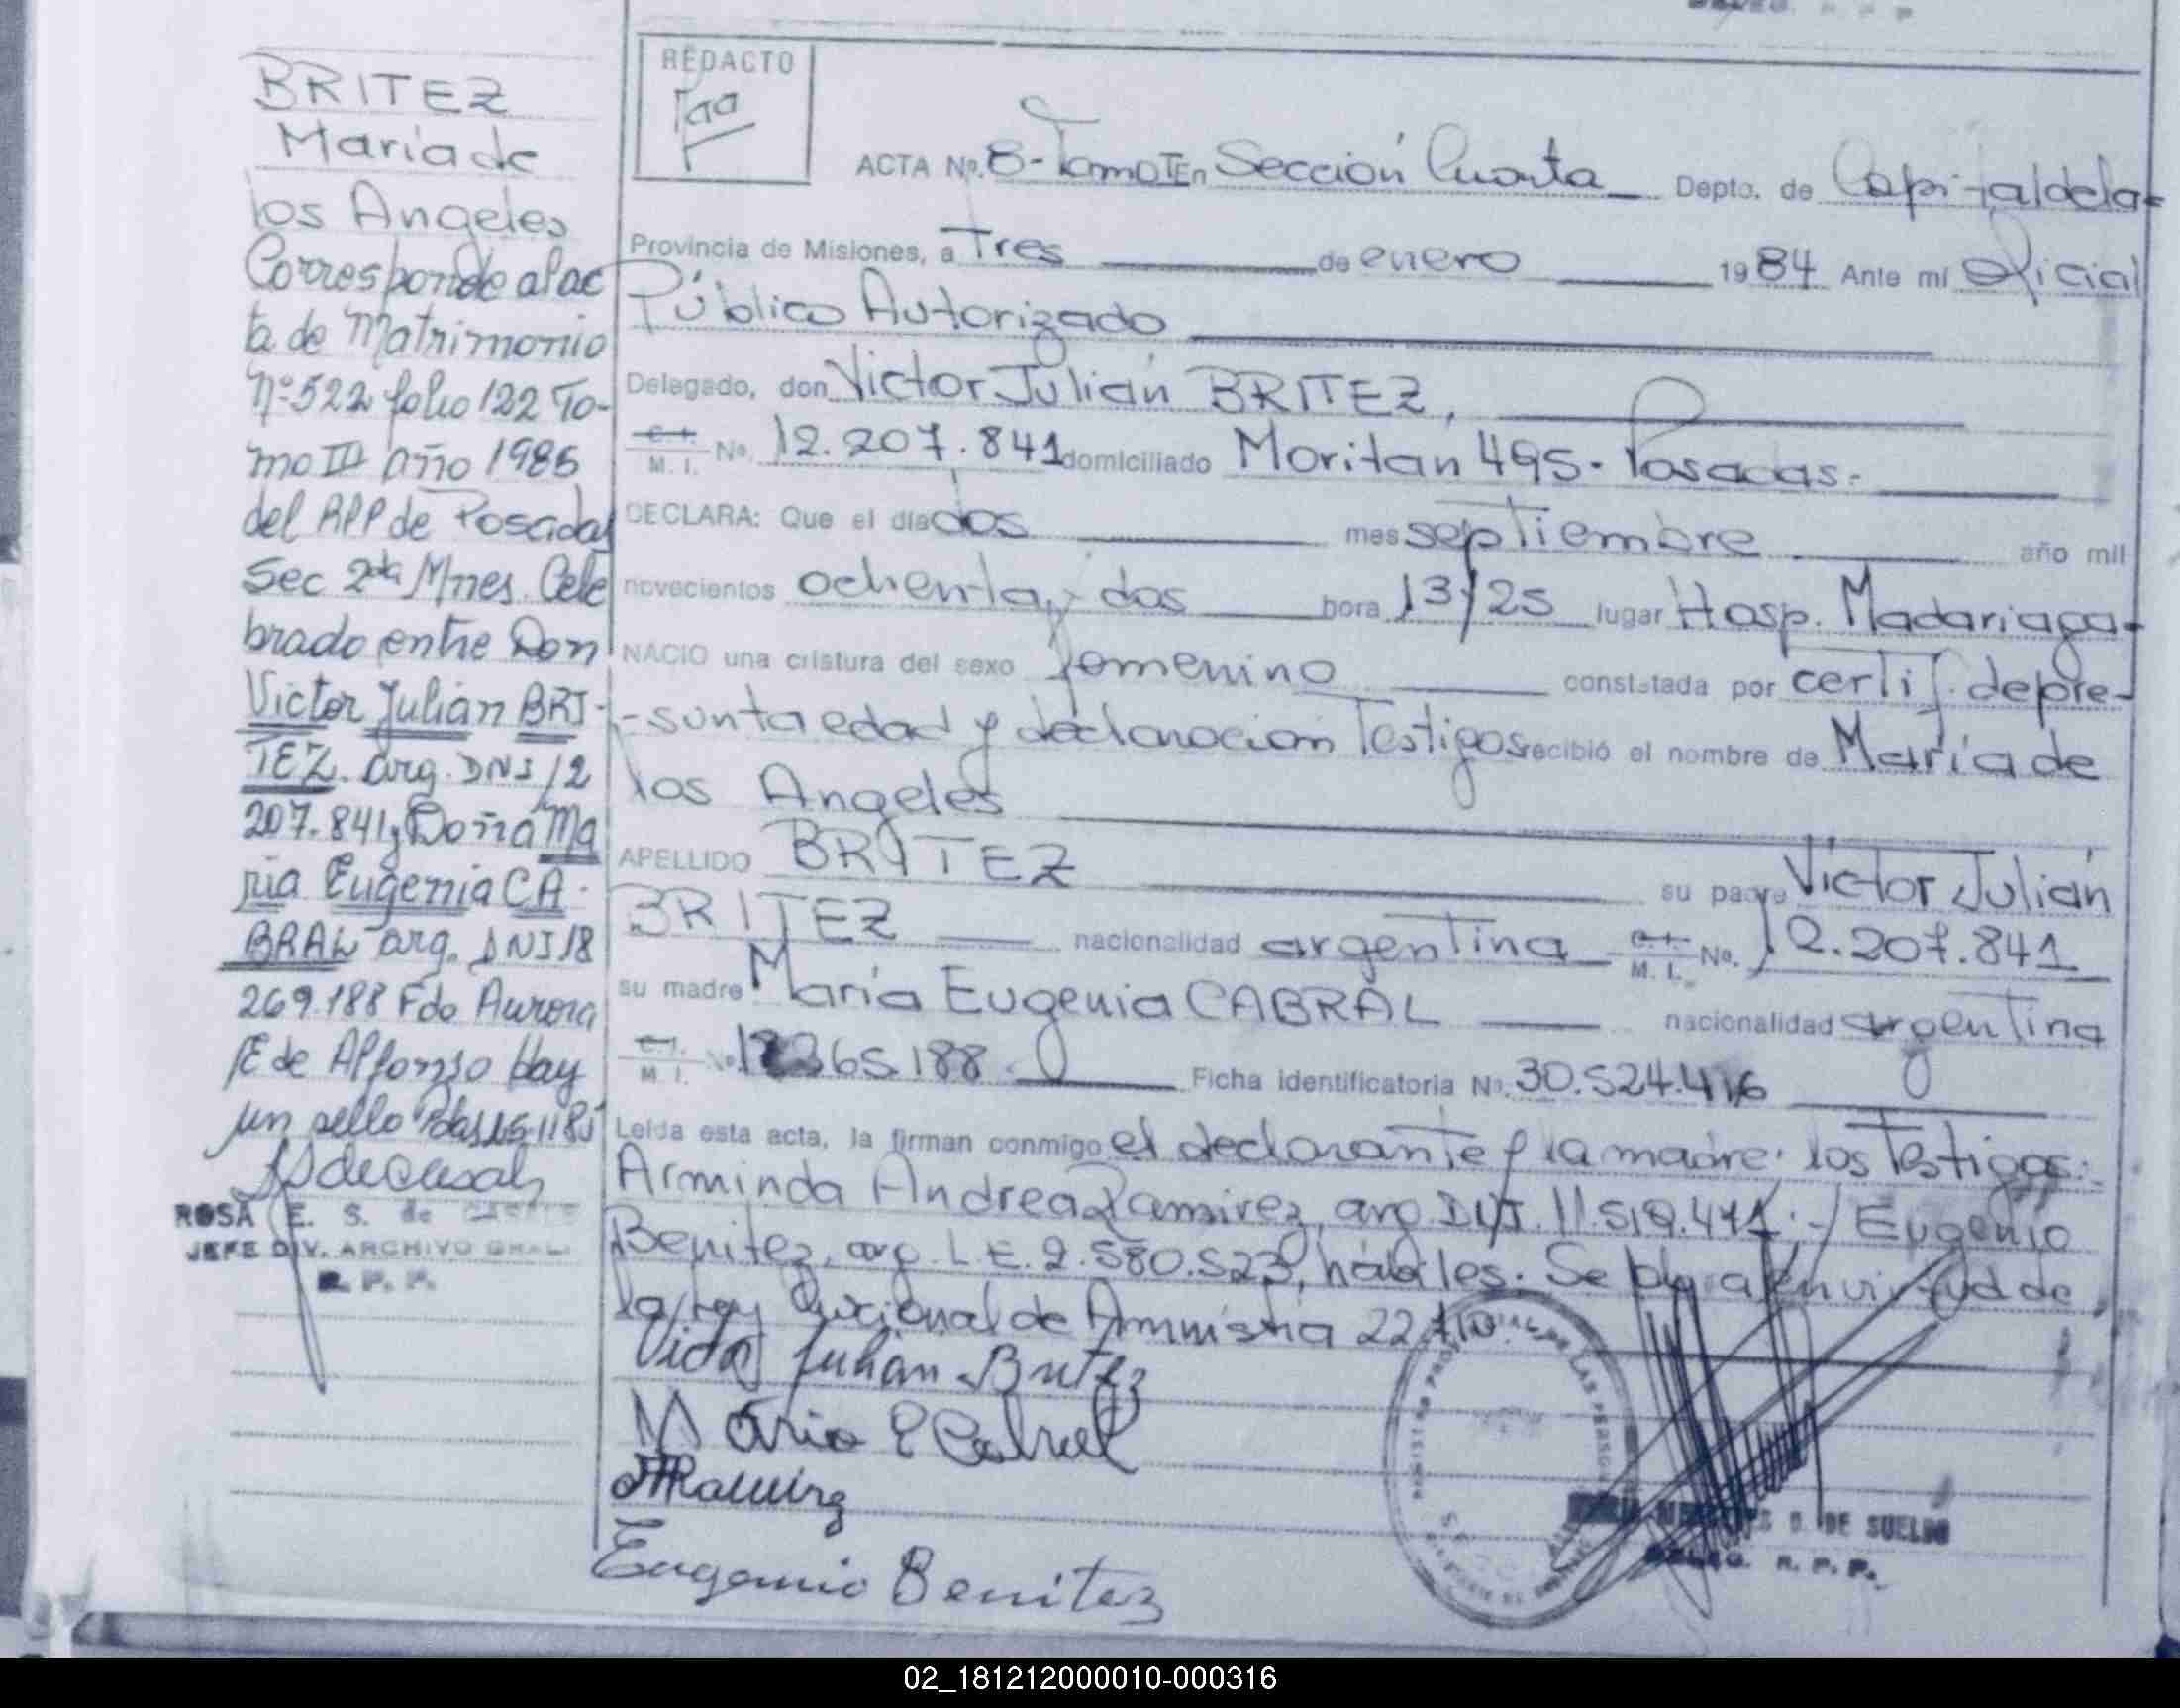 BRITEZ
María de
los Angeles
Corresponde al ac
ta de Matrimonio
Nº 522 folio 122 To-
mo III Año 1985
del RPP de Posadas
Sec 2da Mnes. Cele
brado entre Don
Victor Julián BRI-
TEZ. arg. DNI 12
207.841 y Doña Ma
ría Eugenia CA-
BRAL arg. DNI 18
269.188 Fdo Aurora
E de Alfonso Hay
un sello Pdas
ROSA E. S. de
JEFE DIV. ARCHIVO GRAL.
R. P. P.
REDACTO
ACTA Nº. 8- Tomo I En Sección Cuarta Depto. de Capital de la
Provincia de Misiones, a Tres de enero 1984 Ante mí Oficial
Público Autorizado
Delegado, don Victor Julián BRITEZ,
C. I. M. I. Nº. 12.207.841 domiciliado Moritan 495. Posadas.
DECLARA: Que el día dos mes septiembre año mil
novecientos ochenta y dos hora 13/25 lugar Hosp. Madariaga-
NACIO una criatura del sexo femenino constatada por certif. de pre-
-sunta edad y declaración Testigos recibió el nombre de María de
los Angeles
APELLIDO BRITEZ su padre Victor Julián
BRITEZ nacionalidad argentina C. I. M. I. Nº. 12.207.841
su madre María Eugenia CABRAL nacionalidad argentina
C. I. M. I. Nº 188 Ficha identificatoria Nº. 30.524.416
Leída esta acta, la firman conmigo el declarante y la madre. los Testigos:
Arminda Andrea Ramirez, arg. DNI. 11.519.471.-/ Eugenio
Benitez, arg. L.E. 2.580.523, hábiles. Se en virtud de
la Ley Nacional de Amnistia
Victor Julian Britez
Maria E Cabral
Ramirez
Eugenio Benitez
D. DE SUELDO
DELEG. R. P. P.
02_181212000010-000316